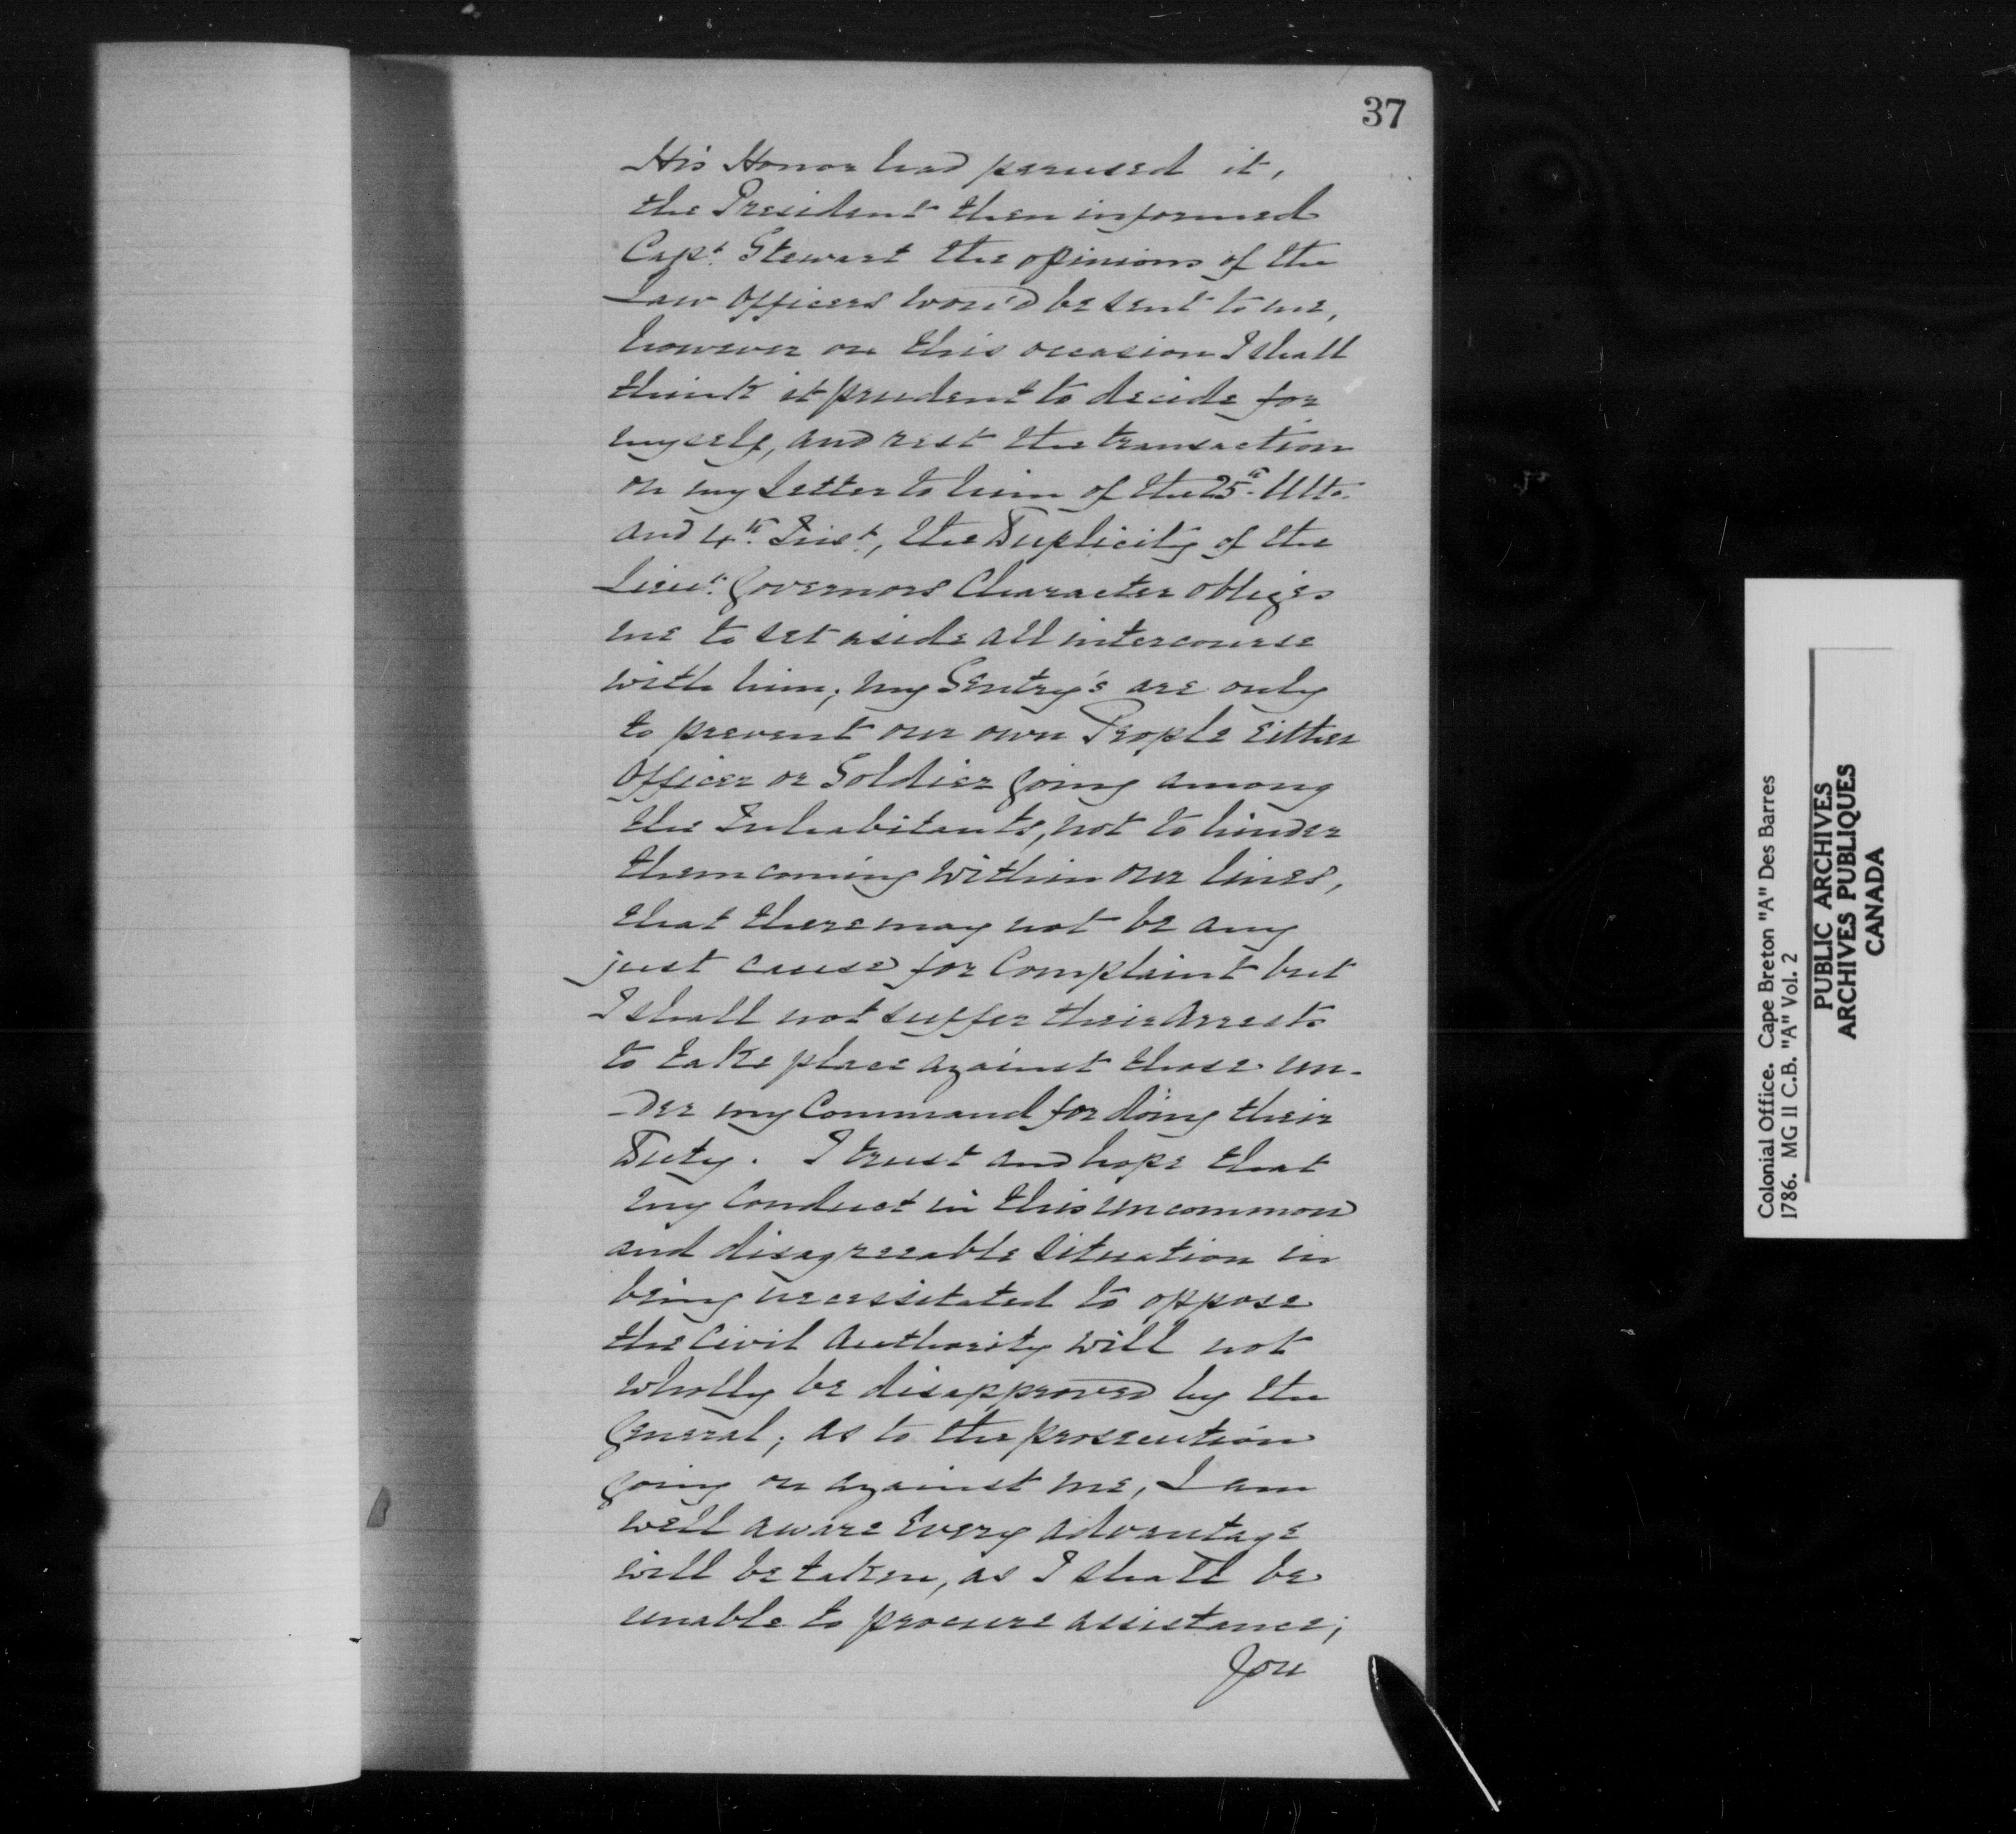 37
His Honor had perused it,
the President then informed
Capt. Stewart the opinions of the
Law Officers wou'd be sent to me,
however on this occasion I shall
think it prudent to decide for
myself, and rest the transaction
on my Letter to him of the 25th. Ulto.
and 4th. Inst., the Duplicity of the
Lieut. Governors Character obliges
me to set aside all intercourse
with him; my Sentry's are only
to prevent our own People Either
Officer or Soldier going among
the Inhabitants, not to hinder
them coming within our lines,
that there may not be any
just cause for Complaint but
I shall not suffer their Arrests
to take place against those un-
-der my Command for doing their
Duty. I trust and hope that
my Conduct in this uncommon
and disagreeable Situation in
being necessitated to oppose
the Civil Authority will not
wholly be disapproved by the
General; as to the prosecution
going on against me, I am
well aware Every advantage
will be taken, as I shall be
unable to procure assistance;
You
Colonial Office. Cape Breton "A" Des Barres
1786. MG 11 C.B. "A" Vol. 2
PUBLIC ARCHIVES
ARCHIVES PUBLIQUES
CANADA